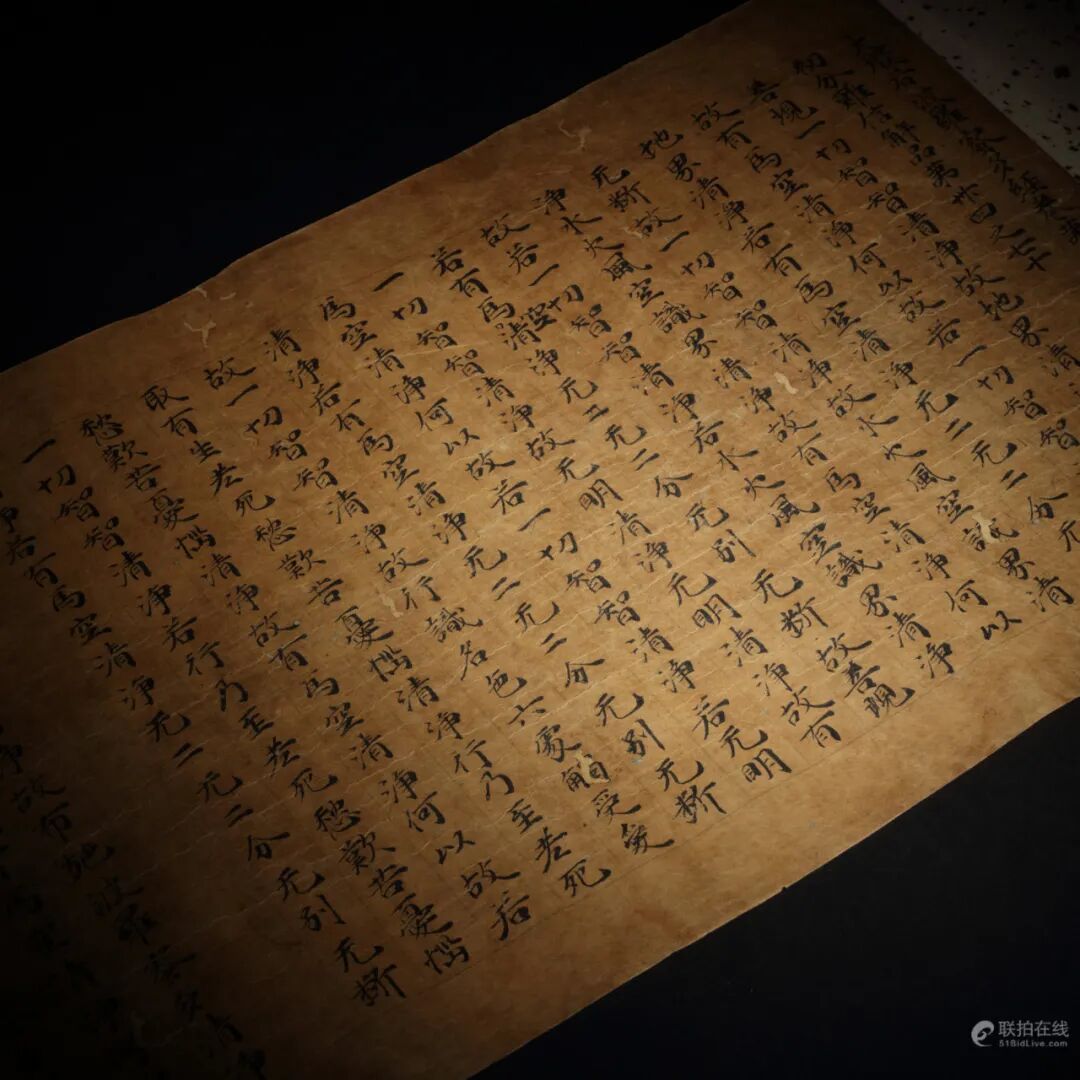 大般若波羅蜜多經卷第
初分難信解品第卅四之七十
善現一切智智清淨故地界清
故有為空清淨何以故若一切智智
地界清淨若有為空清淨无二无二分无
无斷故一切智智清淨故水火風空識界清
淨水火風空識界清淨故有為空清淨何以
故若一切智智清淨若水火風空識界清淨
若有為空清淨无二无二分无別无斷故善現
一切智智清淨故无明清淨无明清淨故有
為空清淨何以故若一切智智清淨若无明
清淨若有為空清淨无二无二分无別无斷
故一切智智清淨故行識名色六處觸受愛
取有生老死愁歎苦憂惱清淨行乃至老死
愁歎苦憂惱清淨故有為空清淨何以故若
一切智智清淨若行乃至老死愁歎苦憂惱
淨若有為空清淨无二无二分无別无斷
淨故布施波羅蜜多清
联拍在线
51BidLive.com